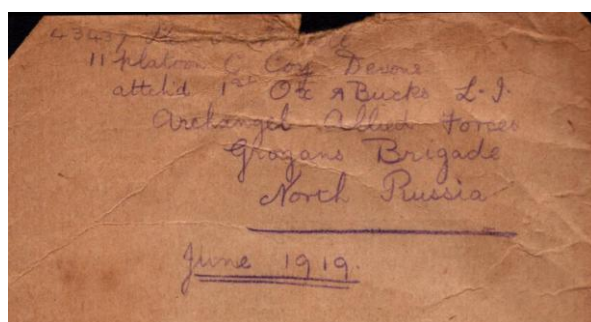 11 platoon C Coy Devons
attchd 1st Ox & Bucks L.I.
Archangel Allied Forces
Grogans Brigade
North Russia
June 1919.